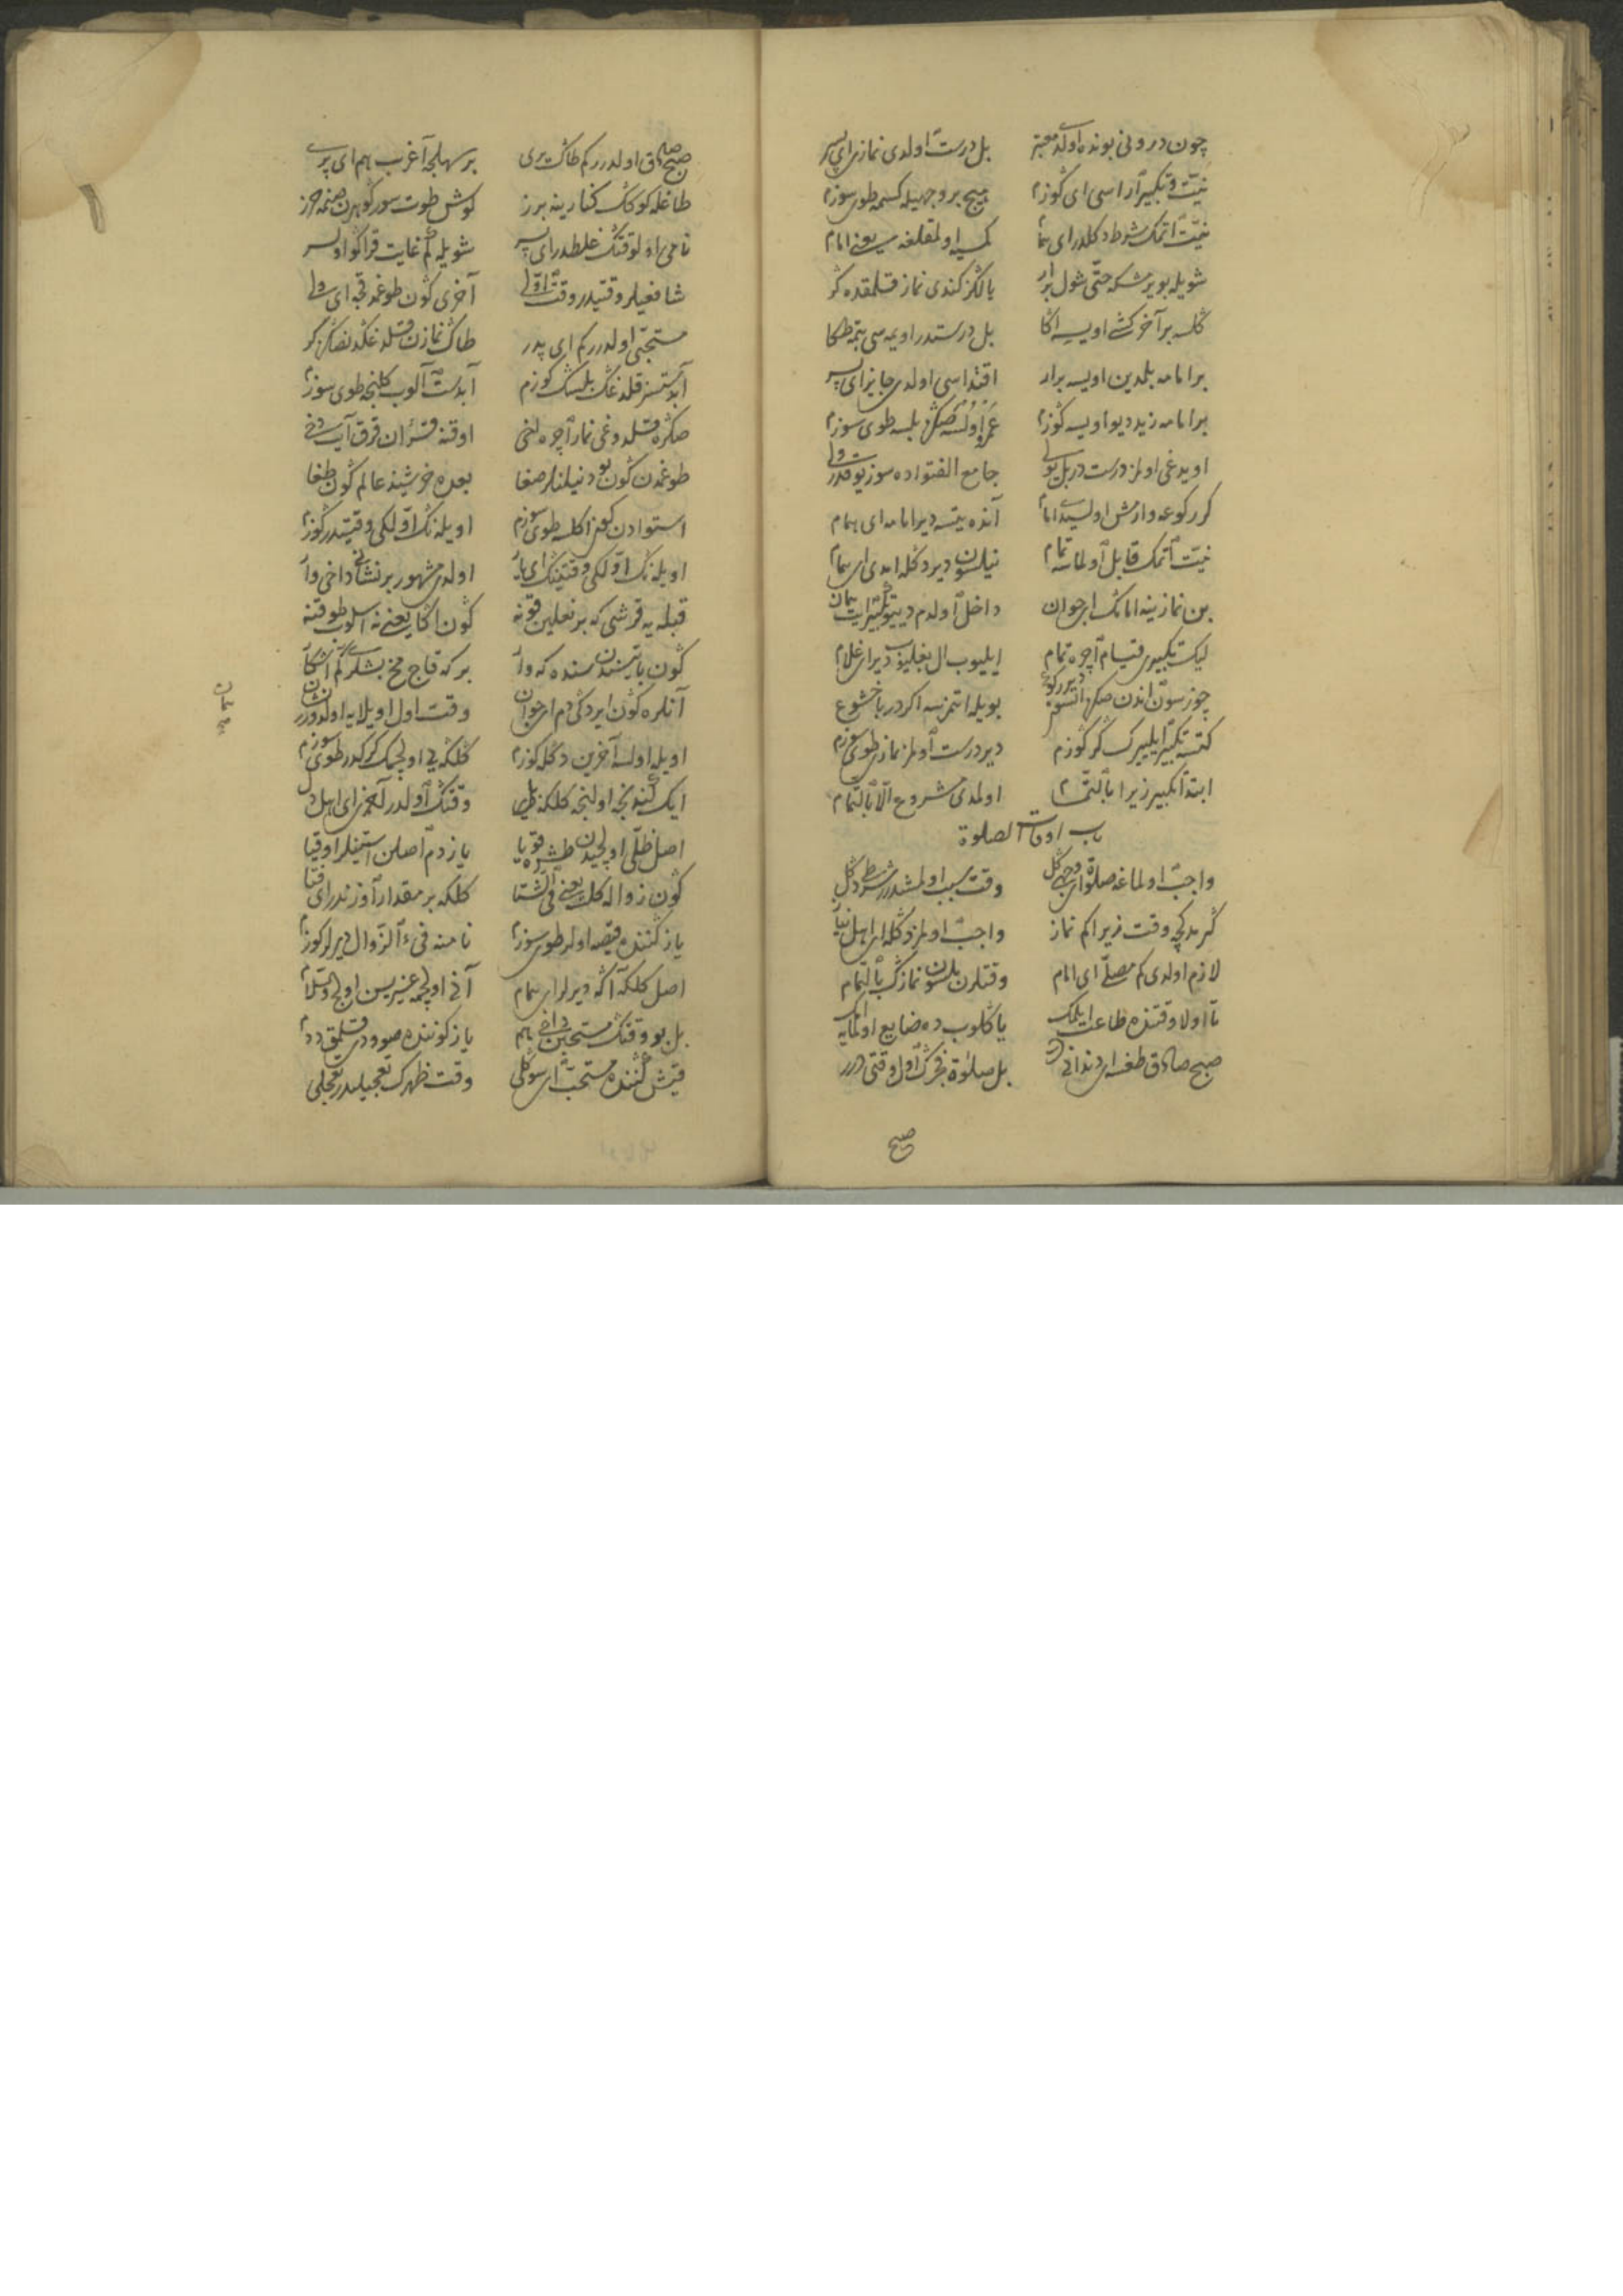 چون درونی بونده اولدی معتبر بل درست اولدی نمازی ای پسر
نیت و تکبیر اراسی ای کوزم هیچ بر وجهیله کسمه طوی سوزم
نیت اتمك شرط دکلدر ای هما کمسیه اولمقلغه یعنی امام
شویله بویر شکه حتی شول برار یالکز کندی نماز قلمقده کر
کلسه بر آخر کشی اویسه اکا بل درستدر اویمه سی
بر امامه بلمدین اویسه برار اقتداسی اولدی جایز ای پسر
بر امامه زید دیو اویسه کوزم عمرو اولسه صکره بلسه طوی سوزم
اویدغی اولمز درست در بل بولی جامع الفتواده سوز یوقدر ولی
کر رکوعه وارمش اولسیدی امام آنده یتسه دیر امامه ای همام
نیت اتمك قابل اولماسه تمام نیلسون دیر دکله امدی ای همام
بن نمازینه امامك ای جوان داخل اولدم دیو تکبیر ایت همان
لیك تکبیری قیام اچره تمام ایلیوب ال بغلیوب دیر ای غلام
چوزسون اندن صکره اتسون دیر رکوع بویله اتمزسه اکر در با خشوع
کتسه تکبیر ایلیرك کر کوزم دیر درست اولمز نمازی طوی سوزم
ابتدا تکبیر زیرا بالتمام اولمدی مشروع الا بالتمام
باب اوقات الصلوة
واجب اولماغه صلوة ای وجهی کل وقت سبب اولمشدر شرط دکل
کرمدکجه وقت زیرا کم نماز واجب اولمز دکله ای اهل نیاز
لازم اولدی کم مصلی ای امام وقتلرن بلسون نمازك بالتمام
تا اولا وقتنده طاعت ایلمك یاکلوب ده ضایع اولمایه امك
صبح صادق طغسه ای بل صلوة فجرك اول وقتی در
صبح
صبح صادق اولدر کم طاك یری بر سهلجه آغرب هم ای پری
طاغله کوکك کنارینه برز کوش طوت سور
نامی اولوقتك غلطدر ای پسر شویله کم غایت قراکو اولسر
شافعیلر وقتیدر وقت اولی آخری کون طوغمدقجه ای ولی
مستحبی اولدر کم ای پدر طاك نمازن قلدغکدنصکره کر
آبدستسز قلدغك بلسك کوزم آبدست آلوب کلنجه طوی سوزم
صکره قلدوغی نماز اچره لغی اوقنه قران قرق آیت دخی
طوغمدن کون بو دنیلنلر صغا بعده خرشیند عالم کون طغا
استوادن کون اکلسه طوی سوزم اویله نك اولکی وقتیدر کوزم
اویله نك اولکی وقتینك ای یار اولدی مشهور بر نشانی داخی وار
قبله یه قرشی که بر نعلین قونه کون اکا یعنی نه اسلوب طوقنه
کون باتیسندن سنده که وار بر که قاج مخ بشلر کم آشکار
آنلره کون ایردکی دم ای جوان وقت اول اویلایه اولدور نشان
اویله اولسه آخرین دکله کوزم کلکه یی اولجمك کرکدر طوی سوزم
ایك کندنجه اولنجه کلکه بل وقتك اولدر آخری ای اهل دل
اصل ظلی اولجیدن طشره قویا یازدم اصلن استینلر اوقیا
کون زواله کلسه یعنی فی الشتا کلکه بر مقدار اوزندر ای فتا
یاز کننده قیصه اولر طوی سوزم نامنه فیء الزوال دیرلر کوزم
اصل کلکه آکه دیرلر ای همام آنی اولجمه غیریسن اولج والسلام
بل بو وقتك مستحبن داخی هم یاز کوننده صوودی قلمق ددم
قیش کننده مستحب ای سوکلی وقت ظهرك تعجیلیدر تعجلی